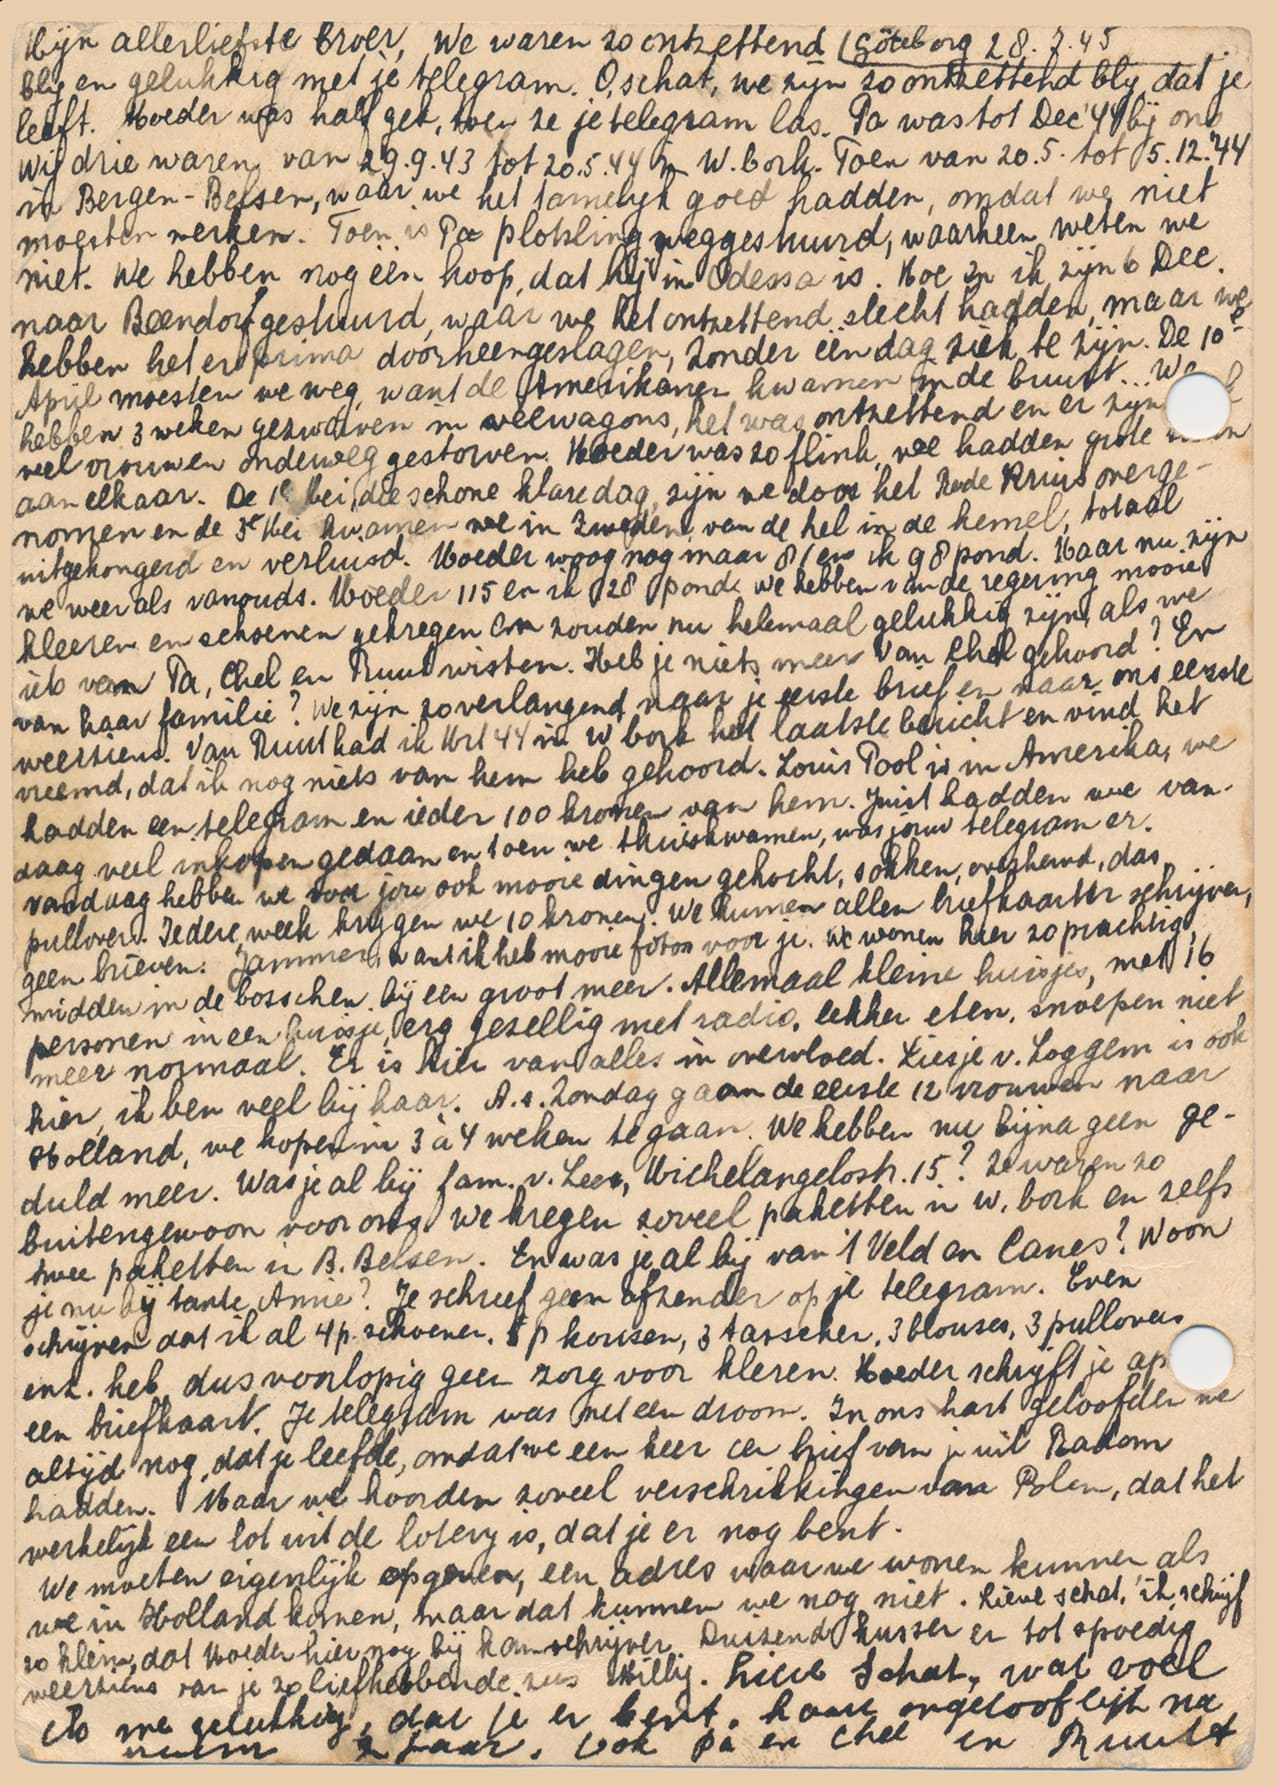 Mijn allerliefste broer, We waren zo ontzettend Göteborg 28.7.45
blij en gelukkig met je telegram. O, schat, we zijn zo ontzettend blij, dat je
leeft. Moeder was half gek, toen ze je telegram las. Pa was tot Dec '44 bij ons
Wij drie waren van 29.9.43 tot 20.5.44 in W.bork. Toen van 20.5. tot 5.12.'44
in Bergen-Belsen, waar we het tamelijk goed hadden, omdat we niet
moesten werken. Toen is Pa plotsling weggestuurd, waarheen weten we
niet. We hebben nog één hoop, dat hij in Odessa is. Moe en ik zijn 6 Dec.
naar Beendorf gestuurd, waar we het ontzettend slecht hadden, maar we
hebben het er prima doorheengeslagen, zonder één dag ziek te zijn. De 10e
April moesten we weg, want de Amerikanen kwamen in de buurt...
hebben 3 weken gezworven in veewagons, het was ontzettend en er zijn
veel vrouwen onderweg gestorven. Moeder was zo flink, we hadden grote
aan elkaar. De 1e Mei, die schone klare dag, zijn we door het Rode Kruis overge-
nomen en de 3e Mei kwamen we in Zweden, van de hel in de hemel, totaal
uitgehongerd en verluisd. Moeder woog nog maar 81 en ik 98 pond. Maar nu zijn
we weer als vanouds. Moeder 115 en ik 128 pond. We hebben van de regering mooie
kleeren en schoenen gekregen en zouden nu helemaal gelukkig zijn, als we
iets van Pa, Chel en Ruud wisten. Heb je niets meer van Chel gehoord? En
van haar familie? We zijn zo verlangend naar je eerste brief en naar ons eerste
weerzien. Van Ruud had ik Mrt 44 in W bork het laatste bericht en vind het
vreemd, dat ik nog niets van hem heb gehoord. Louis Pool is in Amerika, we
hadden een telegram en ieder 100 kronen van hem. Juist hadden we van-
daag veel inkopen gedaan en toen we thuiskwamen, was jouw telegram er.
vandaag hebben we voor jou ook mooie dingen gekocht, sokken, overhemd, das,
pullover. Iedere week krijgen we 10 kronen. We kunnen allen briefkaarten schrijven,
geen brieven. Jammer, want ik heb mooie fotos voor je. We wonen hier zo prachtig,
midden in de bosschen bij een groot meer. Allemaal kleine huisjes, met 16
personen in een huisje, erg gezellig met radio, lekker eten, snoepen niet
meer normaal. Er is hier van alles in overvloed. Liesje v. Loggem is ook
hier, ik ben veel bij haar. A.s. Zondag gaan de eerste 12 vrouwen naar
Holland, we hopen in 3 à 4 weken te gaan. We hebben nu bijna geen ge-
duld meer. Was je al bij fam. v. Leer, Michelangelostr. 15? Ze waren zo
buitengewoon voor ons. We kregen zoveel paketten in W. bork en zelfs
twee paketten in B. Belsen. En was je al bij van 't Veld en Canes? Woon
je nu bij tante Annie? Je schreef geen afzender op je telegram. Even
schrijven dat ik al 4 p. schoenen, 5 p kousen, 3 tasschen, 3 blouses, 3 pullovers
enz. heb, dus voorlopig geen zorg voor kleren. Moeder schrijft je ap
een briefkaart. Je telegram was met een droom. In ons hart geloofden we
altijd nog, dat je leefde, omdat we een keer een brief van je uit Radom
hadden. Maar we hoorden zoveel verschrikkingen van Polen, dat het
werkelijk een lot uit de loterij is, dat je er nog bent.
We moeten eigenlijk opgeven, een adres waar we wonen kunnen als
we in Holland komen, maar dat kunnen we nog niet. Lieve schat, ik schrijf
zo klein, dat Moeder hier nog bij kan schrijven. Duizend kussen en tot spoedig
weerziens van je zo liefhebbende zus Willy. Lieve Schat, wat voel
ik me gelukkig, dat je er bent. haast ongelooflijk na
ruim 2 jaar. Ook Pa en Chel en Ruud